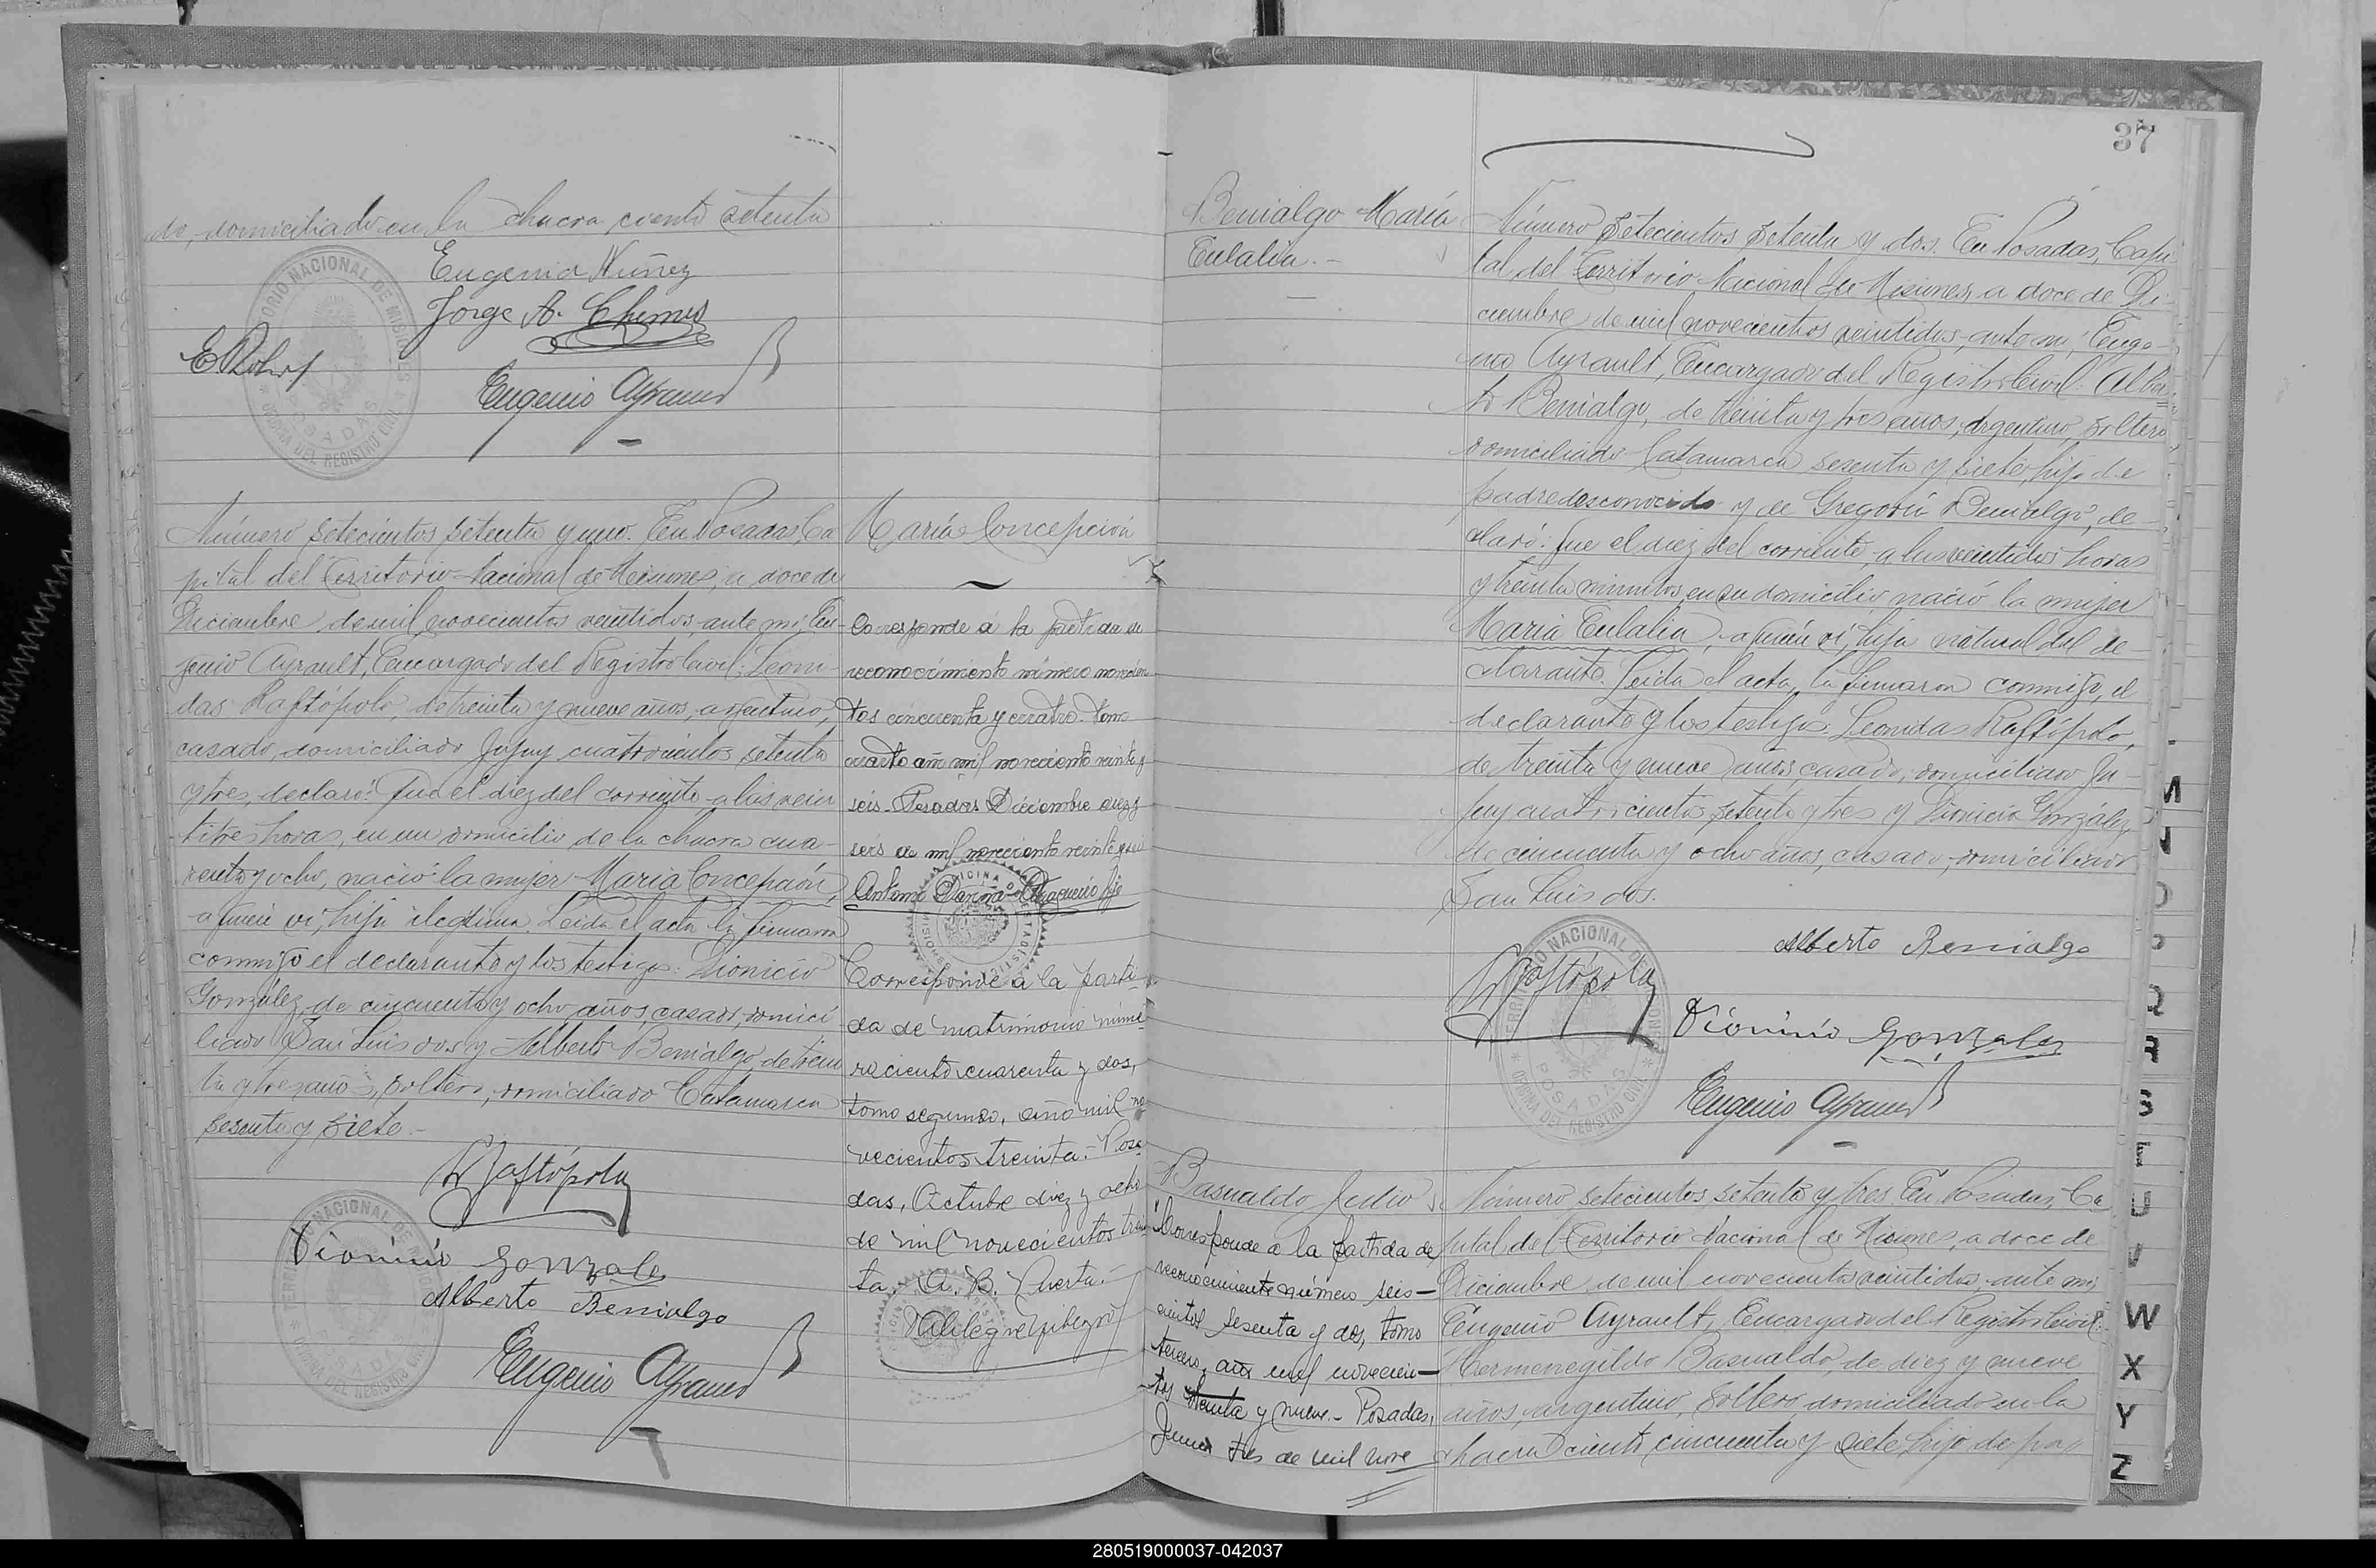 do, domiciliado en la chacra ciento setenta
Eugenia Nuñez
Jorge A.
Eugenio Ayrault
TERRITORIO NACIONAL DE MISIONES
POSADAS
OFICINA DEL REGISTRO CIVIL
Número setecientos setenta y uno. En Posadas, Ca
pital del Territorio Nacional de Misiones, a doce de
Diciembre de mil novecientos veintidos, ante mi, Eu-
genio Ayrault, Encargado del Registro Civil: Leoni-
das Raftópolo, de treinta y nueve años, argentino,
casado, domiciliado Jujuy cuatrocientos setenta
y tres, declaró: Que el diez del corriente, a las vein
titres horas, en su domicilio de la chacra cua-
renta y ocho, nació la mujer María Concepción,
a quien vi, hija ilegítima. Leida el acta la firmaron
conmigo el declarante y los testigos: Dionicio
González, de cincuenta y ocho años, casado, domici
liado San Luis dos y Alberto Benialgo, de trein
ta y tres años, soltero, domiciliado Catamarca
sesenta y siete.-
Raftópolo
Dionicio Gonzales
Alberto Benialgo
Eugenio Ayrault
TERRITORIO NACIONAL DE MISIONES
POSADAS
OFICINA DEL REGISTRO CIVIL
María Concepción
Corresponde a la partida de
reconocimiento número novecien
tos cincuenta y cuatro tomo
cuarto año mil novecientos veinte y
seis - Posadas Diciembre diez y
seis de mil novecientos veinte y seis
Antonio
Corresponde a la parti-
da de matrimonio núme-
ro ciento cuarenta y dos,
tomo segundo, año mil no-
vecientos treinta.- Posa
das, Octubre diez y ocho
de mil novecientos trein
ta. A. B. Puerta.-
37
Benialgo María
Eulalia.-
Número setecientos setenta y dos. En Posadas, Capi
tal del Territorio Nacional de Misiones, a doce de Di-
ciembre de mil novecientos veintidos, ante mi, Euge-
nio Ayrault, Encargado del Registro Civil: Alber-
to Benialgo, de treinta y tres años, argentino, soltero,
domiciliado Catamarca sesenta y siete, hijo de
padre desconocido y de Gregoria Benialgo, de-
claró: Que el diez del corriente, a las veintidos horas
y treinta minutos, en su domicilio, nació la mujer
María Eulalia, a quien vi, hija natural del de-
clarante. Leida el acta, la firmaron conmigo, el
declarante y los testigos: Leonidas Raftópolo,
de treinta y nueve años, casado, domiciliado Ju-
juy cuatrocientos setenta y tres y Dionicio González,
de cincuenta y ocho años, casado, domiciliado
San Luis dos.
Alberto Benialgo
Raftópolo
Dionicio Gonzales
Eugenio Ayrault
TERRITORIO NACIONAL DE MISIONES
POSADAS
OFICINA DEL REGISTRO CIVIL
Basualdo Julio
Corresponde a la partida de
reconocimiento número seis-
cientos sesenta y dos, tomo
tercero, año mil novecien-
tos treinta y nueve.- Posadas,
Junio tres de mil nove
Número setecientos setenta y tres. En Posadas, Ca
pital del Territorio Nacional de Misiones, a doce de
Diciembre de mil novecientos veintidos, ante mi,
Eugenio Ayrault, Encargado del Registro Civil:
Hermenegildo Basualdo, de diez y nueve
años, argentino, soltero, domiciliado en la
chacra ciento cincuenta y siete, hijo de pa
R
S
T
U
W
X
Y
Z
280519000037-042037